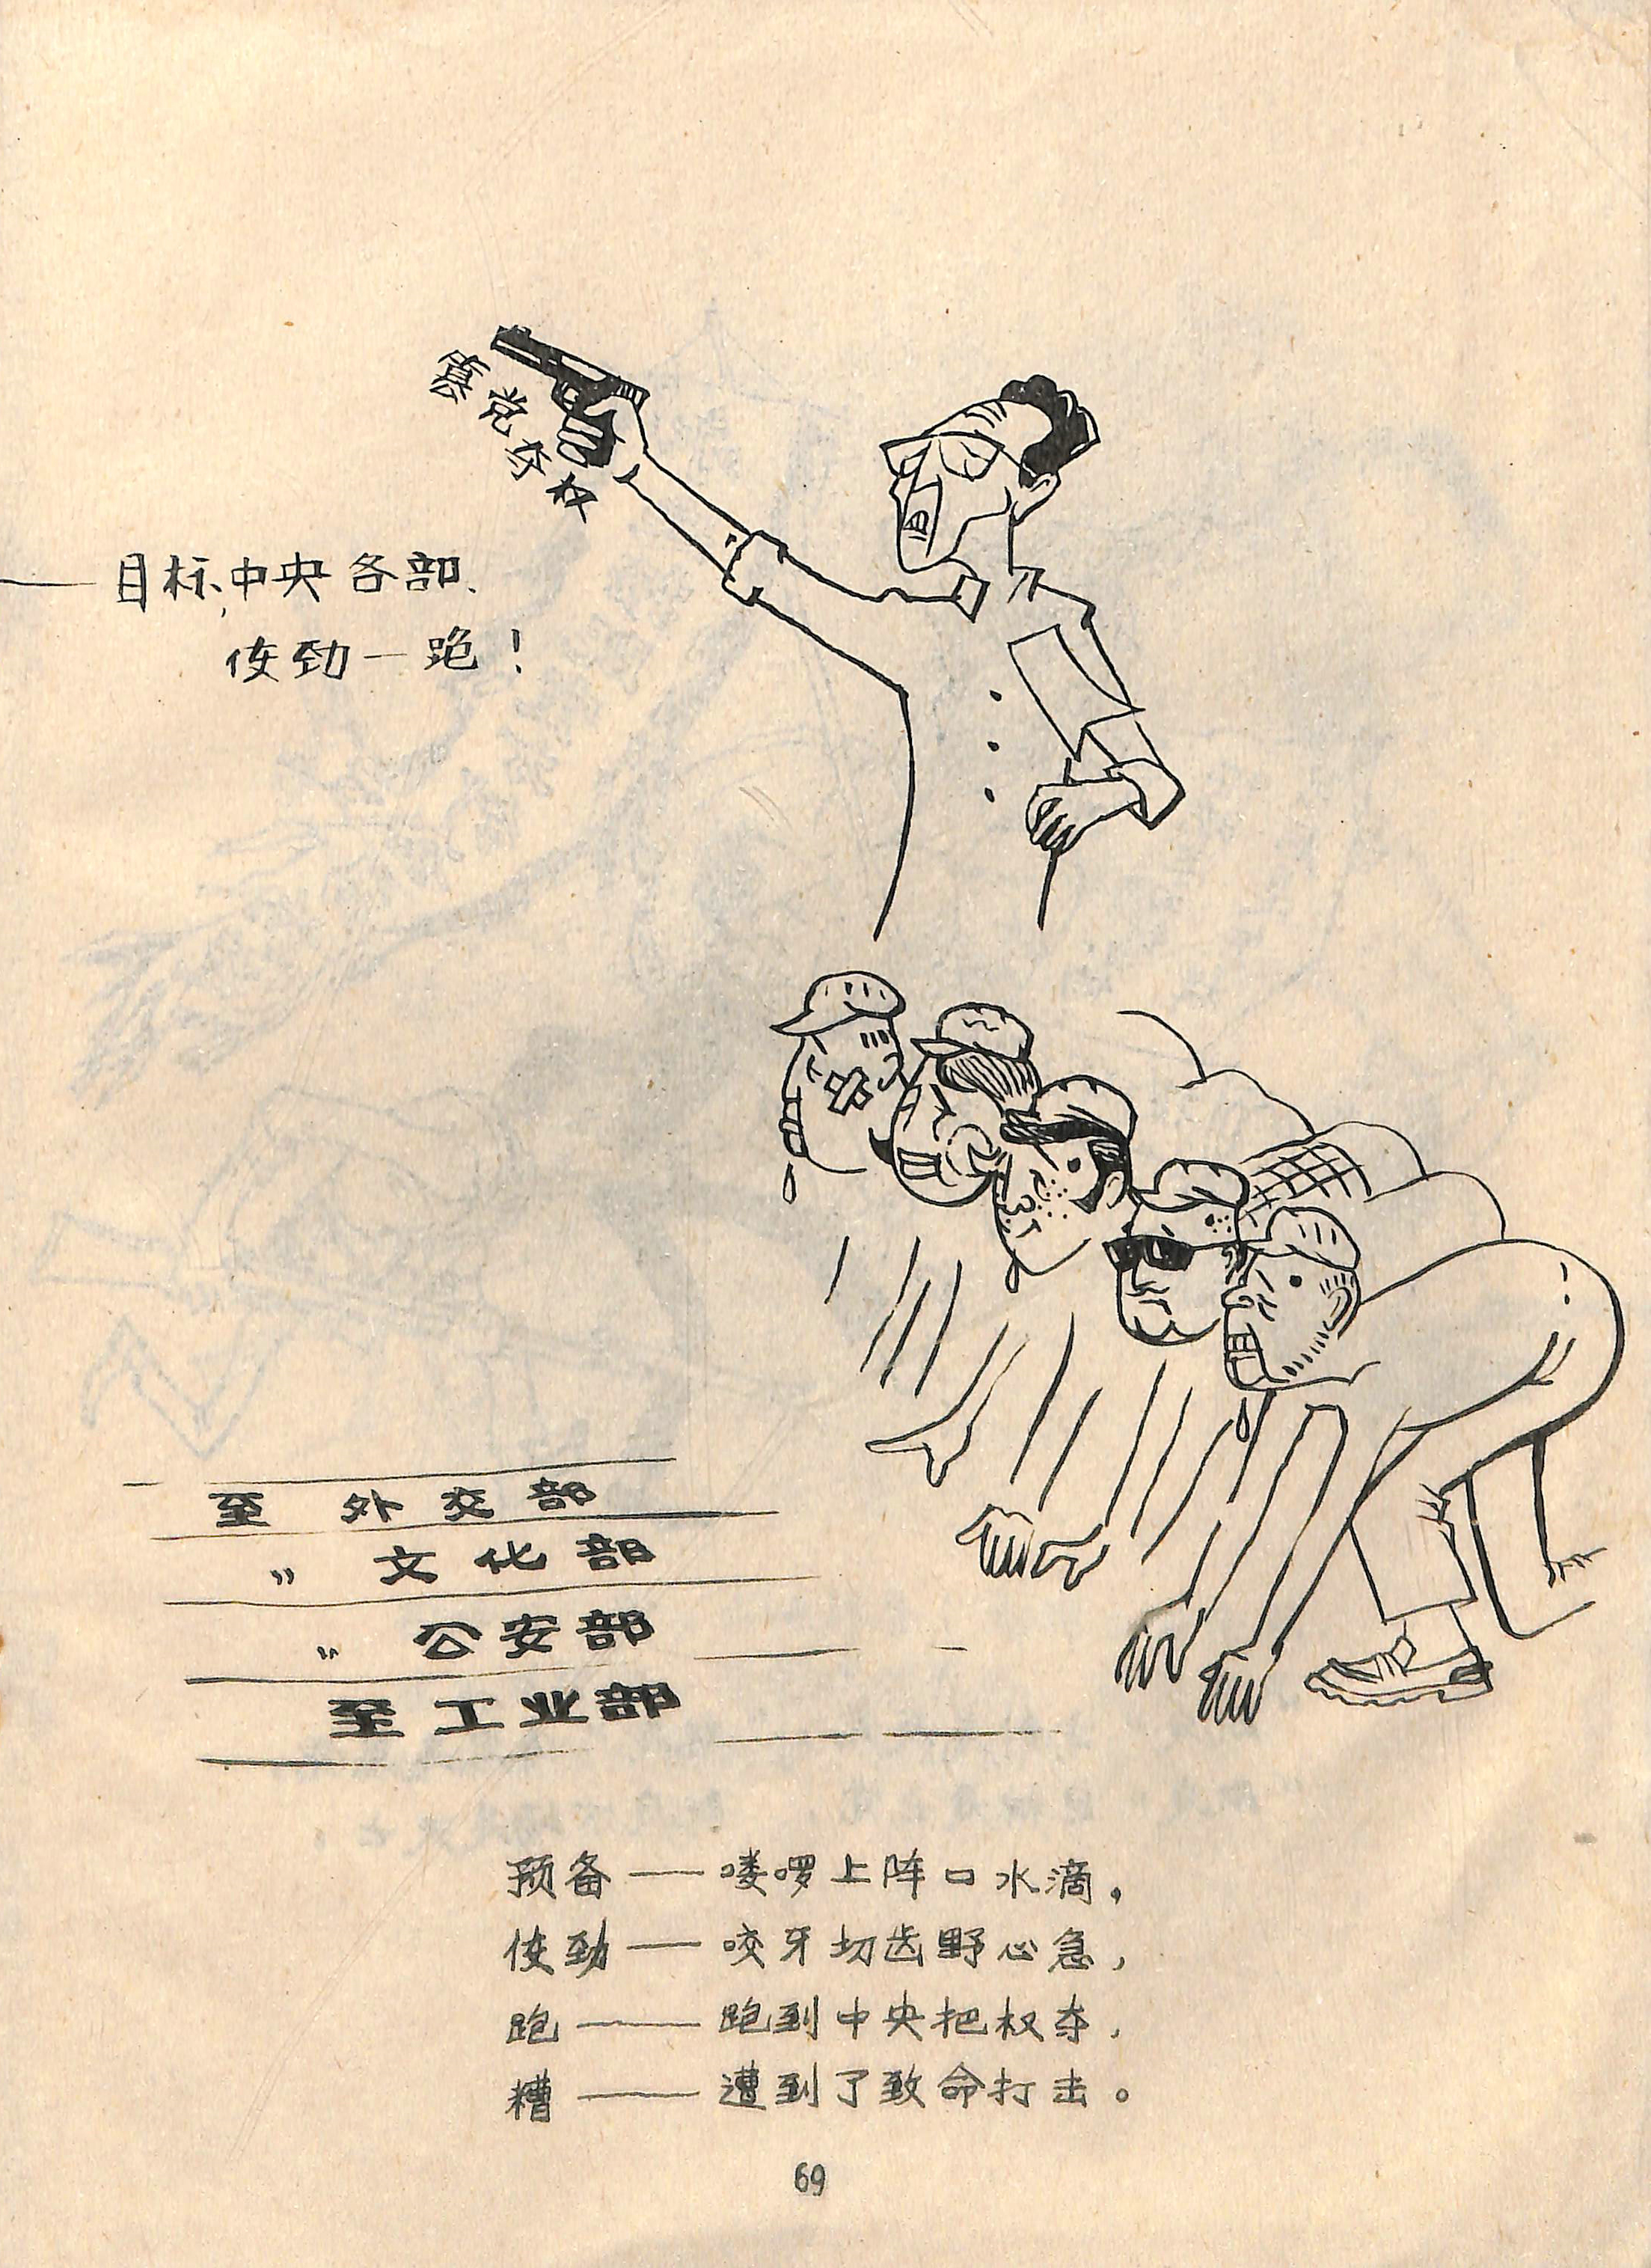 篡党夺权
——目标、中央各部、
使劲一跑！
至 外交部
〃 文化部
〃 公安部
至工业部
预备——喽啰上阵口水滴，
使劲——咬牙切齿野心急，
跑——跑到中央把权夺，
糟——遭到了致命打击。
69